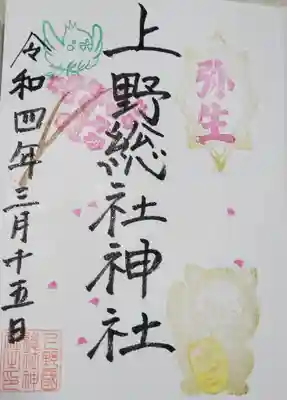 弥生
上野総社神社
令和四年三月十五日